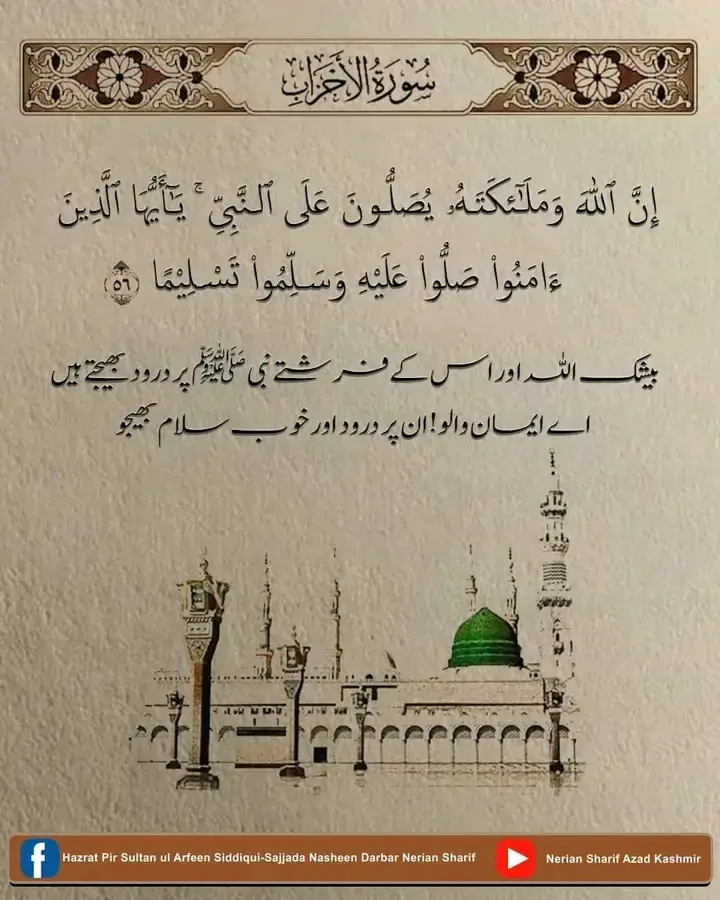 سُورَةُ الأَحْزَاب
إِنَّ ٱللَّهَ وَمَلَـٰٓئِكَتَهُۥ يُصَلُّونَ عَلَى ٱلنَّبِيِّ ۚ يَـٰٓأَيُّهَا ٱلَّذِينَ
ءَامَنُوا۟ صَلُّوا۟ عَلَيْهِ وَسَلِّمُوا۟ تَسْلِيْمًا ٥٦
بیشک اللہ اور اس کے فرشتے نبی ﷺ پر درود بھیجتے ہیں
اے ایمان والو! ان پر درود اور خوب سلام بھیجو
Hazrat Pir Sultan ul Arfeen Siddiqui-Sajjada Nasheen Darbar Nerian Sharif
Nerian Sharif Azad Kashmir